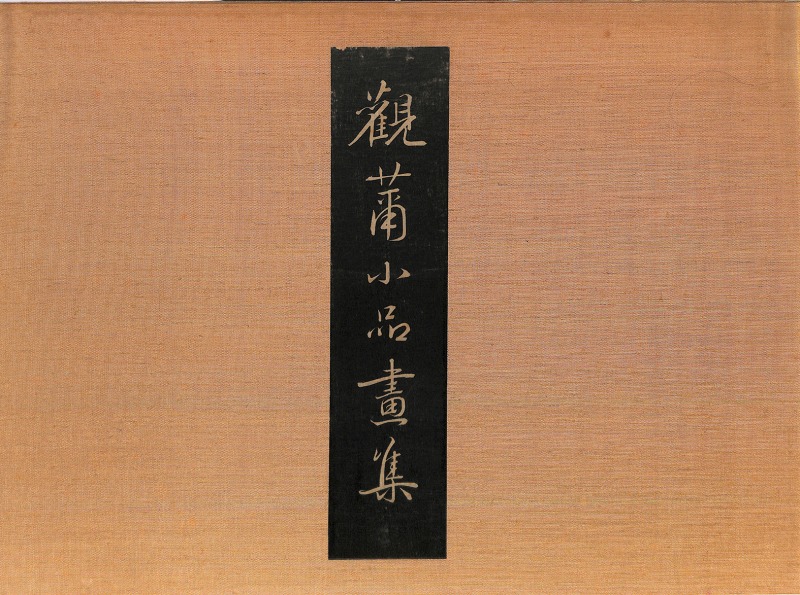 觀莆小品畫集